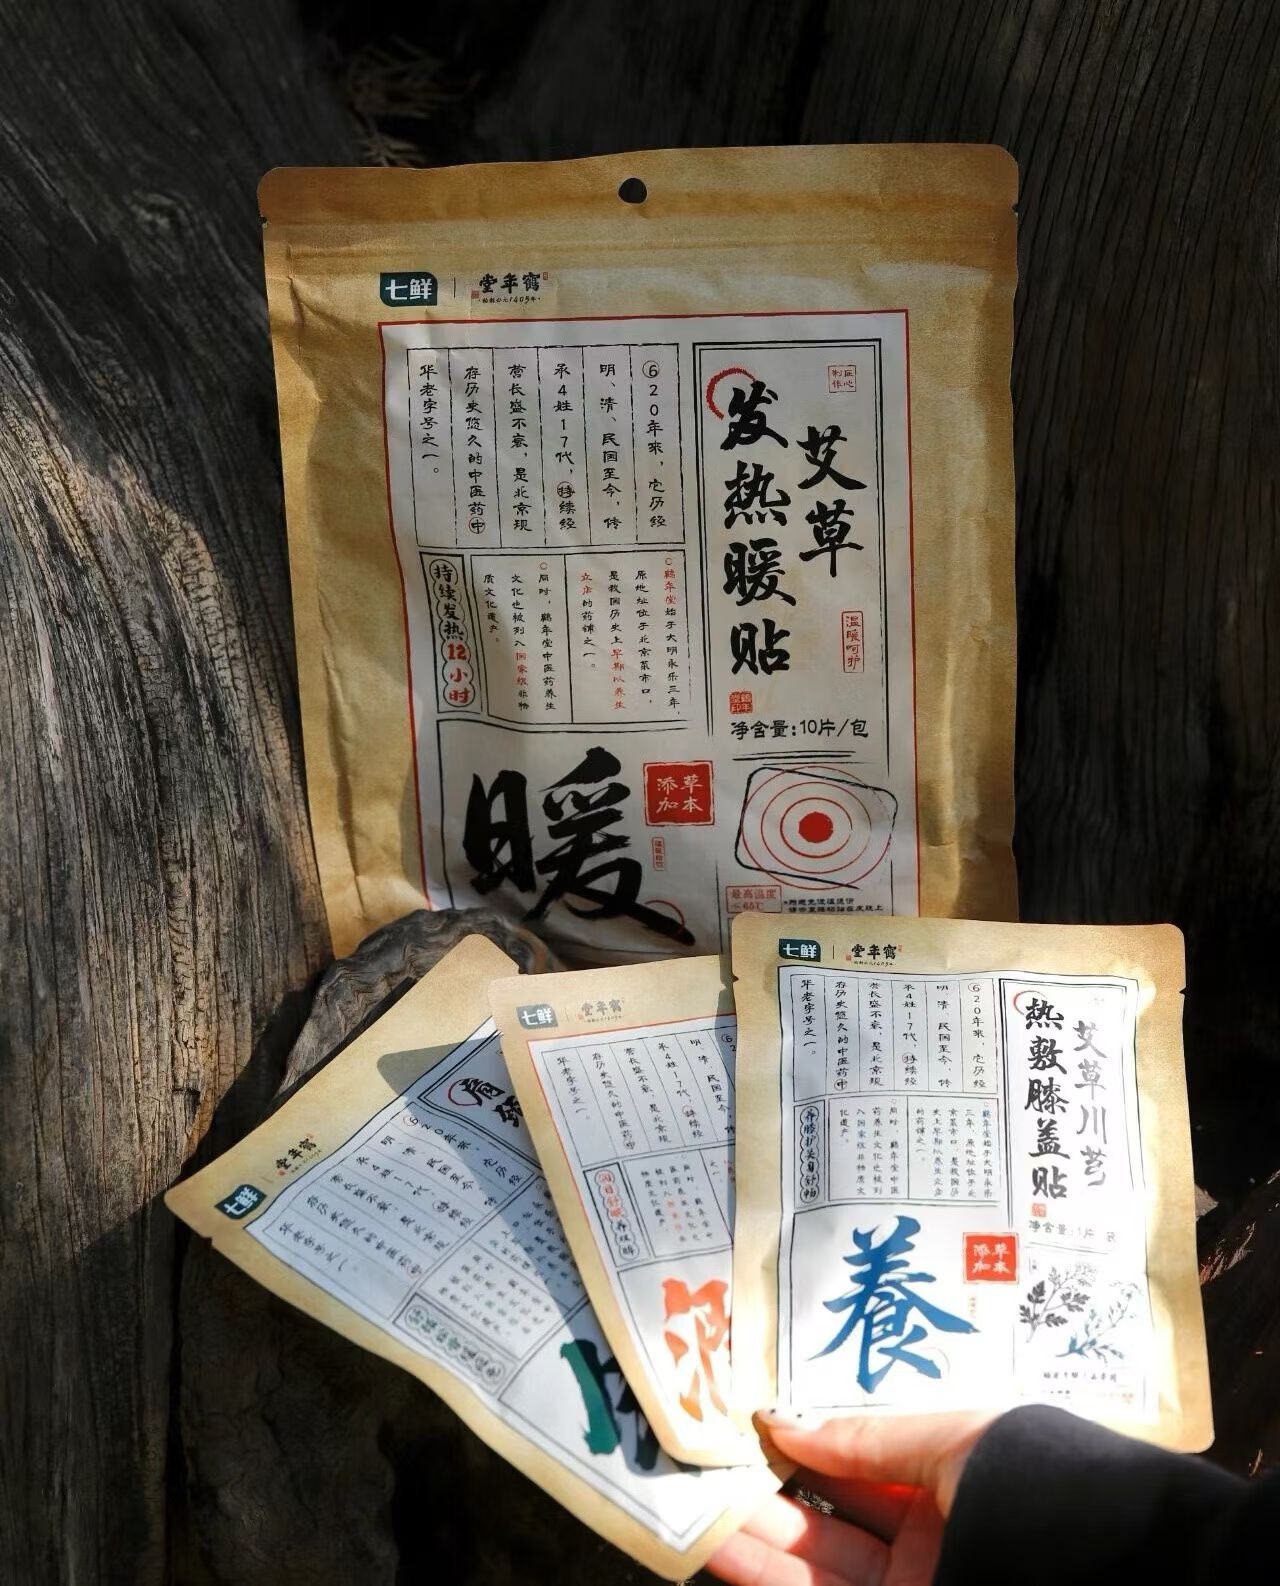 七鲜
鹤年堂
始创公元1405年
匠心
制作
艾草
发热暖贴
温暖呵护
鹤年堂印
净含量:10片/包
620年来,它历经
明、清、民国至今,传
承4姓17代,持续经
营长盛不衰,是北京现
存历史悠久的中医药中
华老字号之一。
鹤年堂始于大明永乐三年,
原地址位于北京菜市口,
是我国历史上早期以养生
立店的药铺之一。
同时,鹤年堂中医药养生
文化也被列入国家级非物
质文化遗产。
持续发热12小时
暖
草本
添加
最高温度
≤65℃
七鲜
鹤年堂
肩颈
620年来,它历经
明、清、民国至今,传
承4姓17代,持续经
营长盛不衰,是北京现
存历史悠久的中医药中
华老字号之一。
七鲜
鹤年堂
明、清、民国至今,
承4姓17代,持续经
营长盛不衰,是北京现
存历史悠久的中医药中
华老字号之一。
润目舒缓养双眸
润
七鲜
鹤年堂
艾草川芎
热敷膝盖贴
净含量:1片
620年来,它历经
明、清、民国至今,传
承4姓17代,持续经
营长盛不衰,是北京现
存历史悠久的中医药中
华老字号之一。
鹤年堂始于大明永乐
三年,原地址位于北
京菜市口,是我国历
史上早期以养生立店
的药铺之一。
同时,鹤年堂中医
药养生文化也被列
入国家级非物质文
化遗产。
养膝护关身舒畅
養
草本
添加